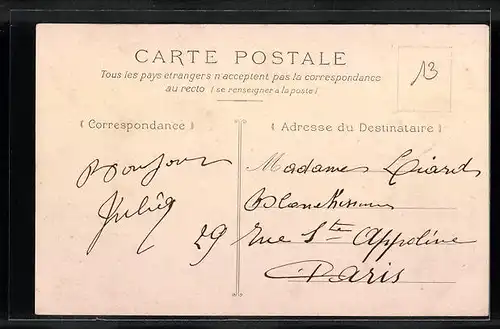 CARTE POSTALE
Tous les pays étrangers n'acceptent pas la correspondance
au recto (se renseigner a la poste)
13
(Correspondance)
(Adresse du Destinataire)
Bonjour
Madame Liard
Blanchisseuse
29 Rue Ste Appoline
Paris